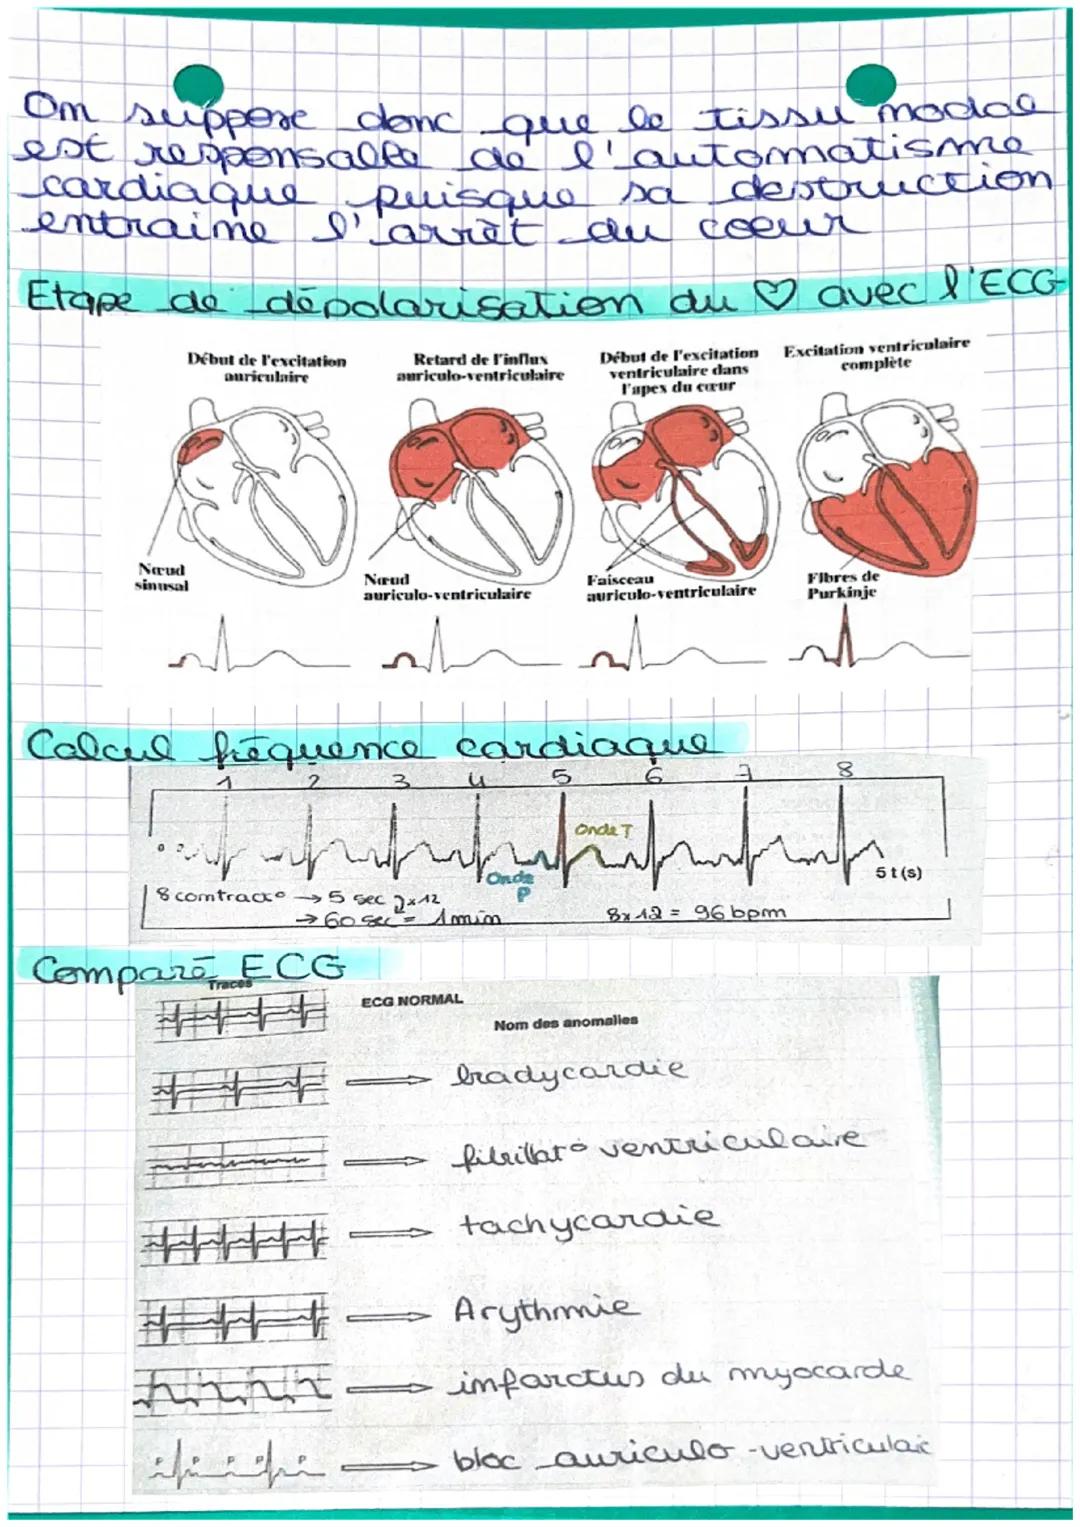 On suppose donc que le tissu nodal
est responsable de l'automatisme
cardiaque puisque sa destruction
entraine l'arrêt du coeur
Etape de dépolarisation du ♡ avec l'ECG
Début de l'excitation
auriculaire
Retard de l'influx
auriculo-ventriculaire
Début de l'excitation
ventriculaire dans
l'apex du cœur
Excitation ventriculaire
complète
Nœud
sinusal
Nœud
auriculo-ventriculaire
Faisceau
auriculo-ventriculaire
Fibres de
Purkinje
Calcul fréquence cardiaque
1 2 3 4 5 6 7 8
Onde T
Onde
P
5 t (s)
8 contract° → 5 sec ×12
→ 60 sec = 1 min
8×12 = 96 bpm
Comparé ECG
Traces
ECG NORMAL
Nom des anomalies
bradycardie
fibillat° ventriculaire
tachycardie
Arythmie
infarctus du myocarde
P P P P P
bloc auriculo-ventriculaire